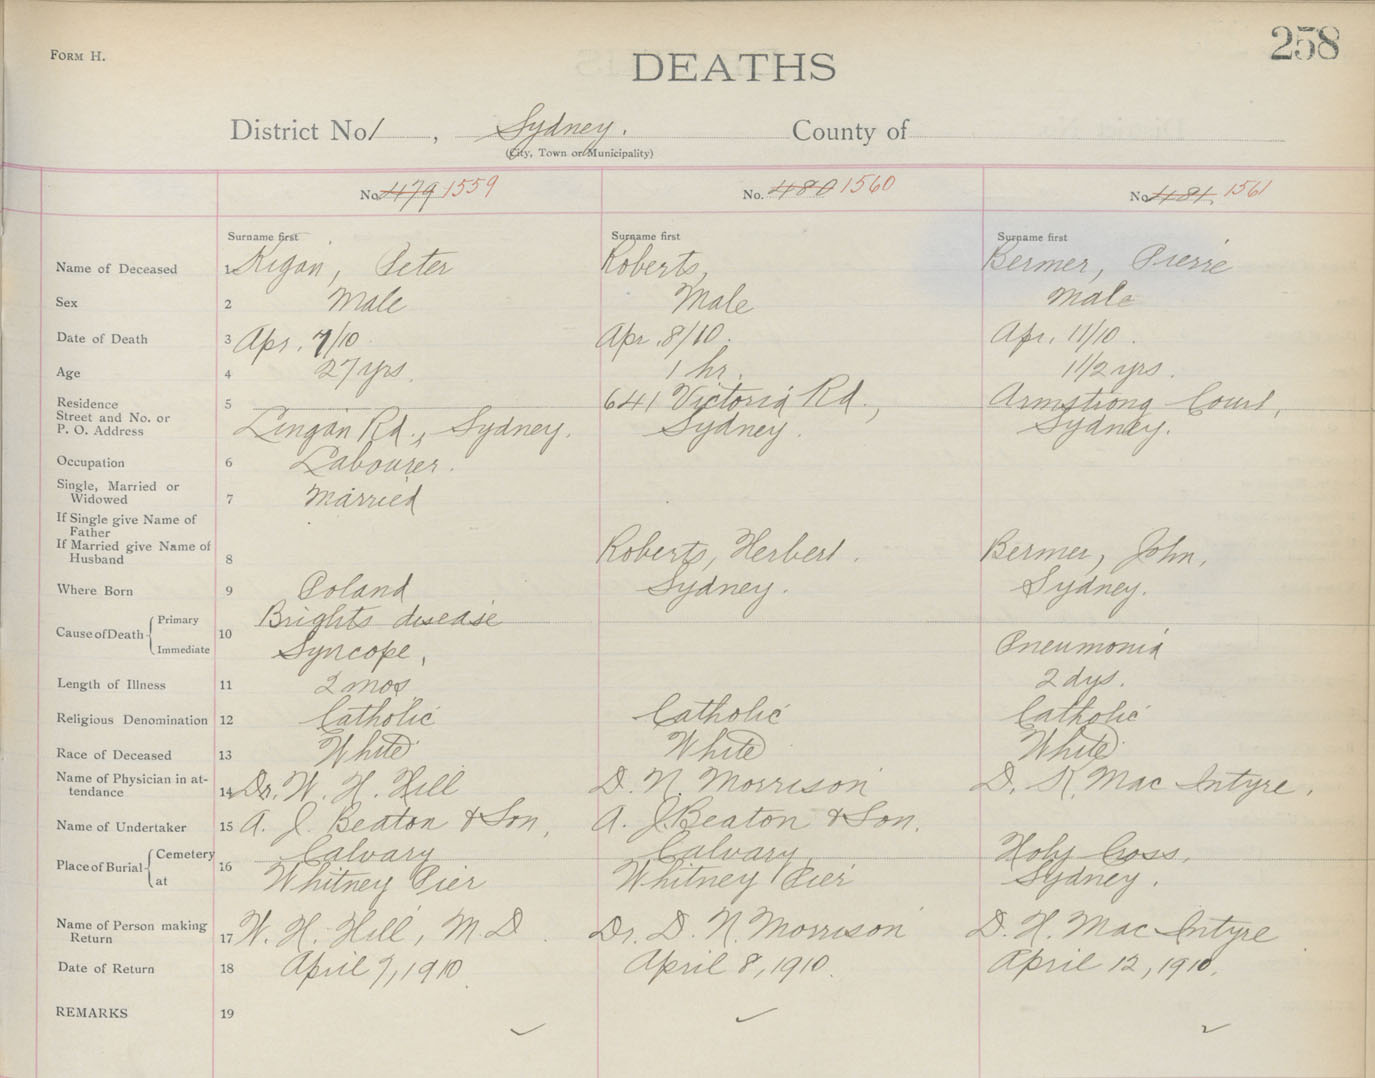 FORM H.
258
DEATHS
District No 1, Sydney. County of
(City, Town or Municipality)
No. 479 1559 No. 480 1560 No. 481. 1561
Surname first Surname first Surname first
Name of Deceased 1 Kigan, Peter Roberts, Bermer, Pierre
Sex 2 Male Male Male
Date of Death 3 Apr. 7/10 Apr. 8/10. Apr. 11/10.
Age 4 27 yrs. 1 hr. 1 1/2 yrs.
Residence 5 641 Victoria Rd., Armstrong Court,
Street and No. or
P. O. Address Lingan Rd., Sydney. Sydney. Sydney.
Occupation 6 Labourer.
Single, Married or
Widowed 7 Married
If Single give Name of
Father
If Married give Name of
Husband 8 Roberts, Herbert. Bermer, John,
Where Born 9 Poland Sydney. Sydney.
Cause of Death Primary 10 Brights disease
Immediate Syncope, Pneumonia
Length of Illness 11 2 mos. 2 dys.
Religious Denomination 12 Catholic Catholic Catholic
Race of Deceased 13 White White White
Name of Physician in at-
tendance 14 Dr. W. H. Hill D. N. Morrison D. K. Mac Intyre.
Name of Undertaker 15 A. J. Beaton & Son, A. J. Beaton & Son.
Place of Burial Cemetery 16 Calvary Calvary, Holy Cross,
at Whitney Pier Whitney Pier Sydney.
Name of Person making
Return 17 W. H. Hill, M.D Dr. D. N. Morrison D. H. Mac Intyre
Date of Return 18 April 7, 1910. April 8, 1910. April 12, 1910.
REMARKS 19